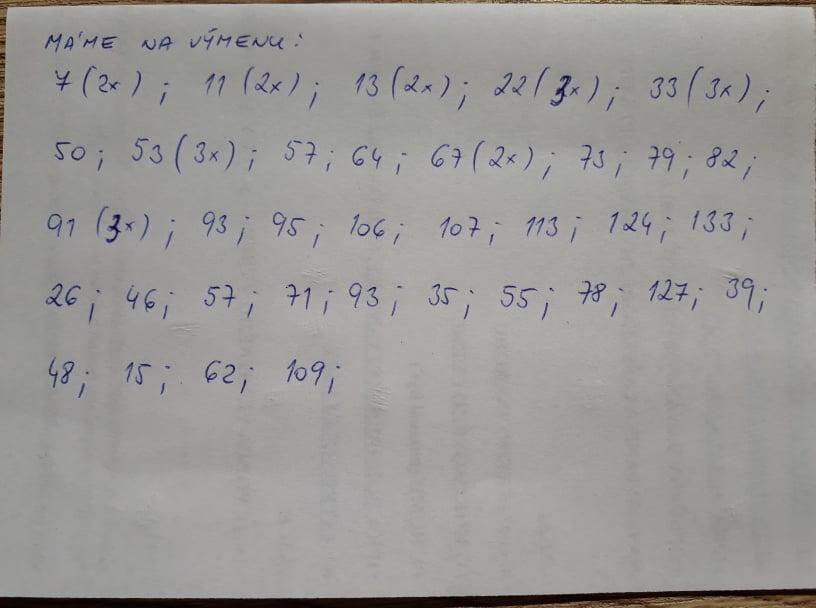 MÁME NA VÝMENU:
7 (2x) ; 11 (2x) ; 13 (2x) ; 22 (3x) ; 33 (3x) ;
50 ; 53 (3x) ; 57 ; 64 ; 67 (2x) ; 73 ; 79 ; 82 ;
91 (3x) ; 93 ; 95 ; 106 ; 107 ; 113 ; 124 ; 133 ;
26 ; 46 ; 57 ; 71 ; 93 ; 35 ; 55 ; 78 ; 127 ; 39 ;
48 ; 15 ; 62 ; 109 ;